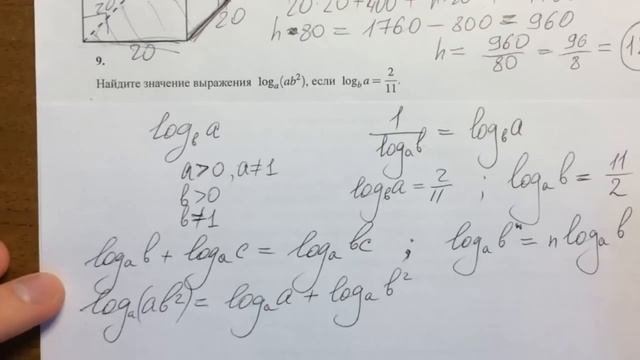 20·20+400+
20
20
20
h·80 = 1760 - 800 = 960
h = 960/80 = 96/8 =
9.
Найдите значение выражения logₐ(ab²), если log_b a = 2/11.
log_b a
a>0, a≠1
b>0
b≠1
1/logₐb = log_b a
log_b a = 2/11 ; logₐb = 11/2
logₐb + logₐc = logₐbc ; logₐbⁿ = n logₐb
logₐ(ab²) = logₐa + logₐb²